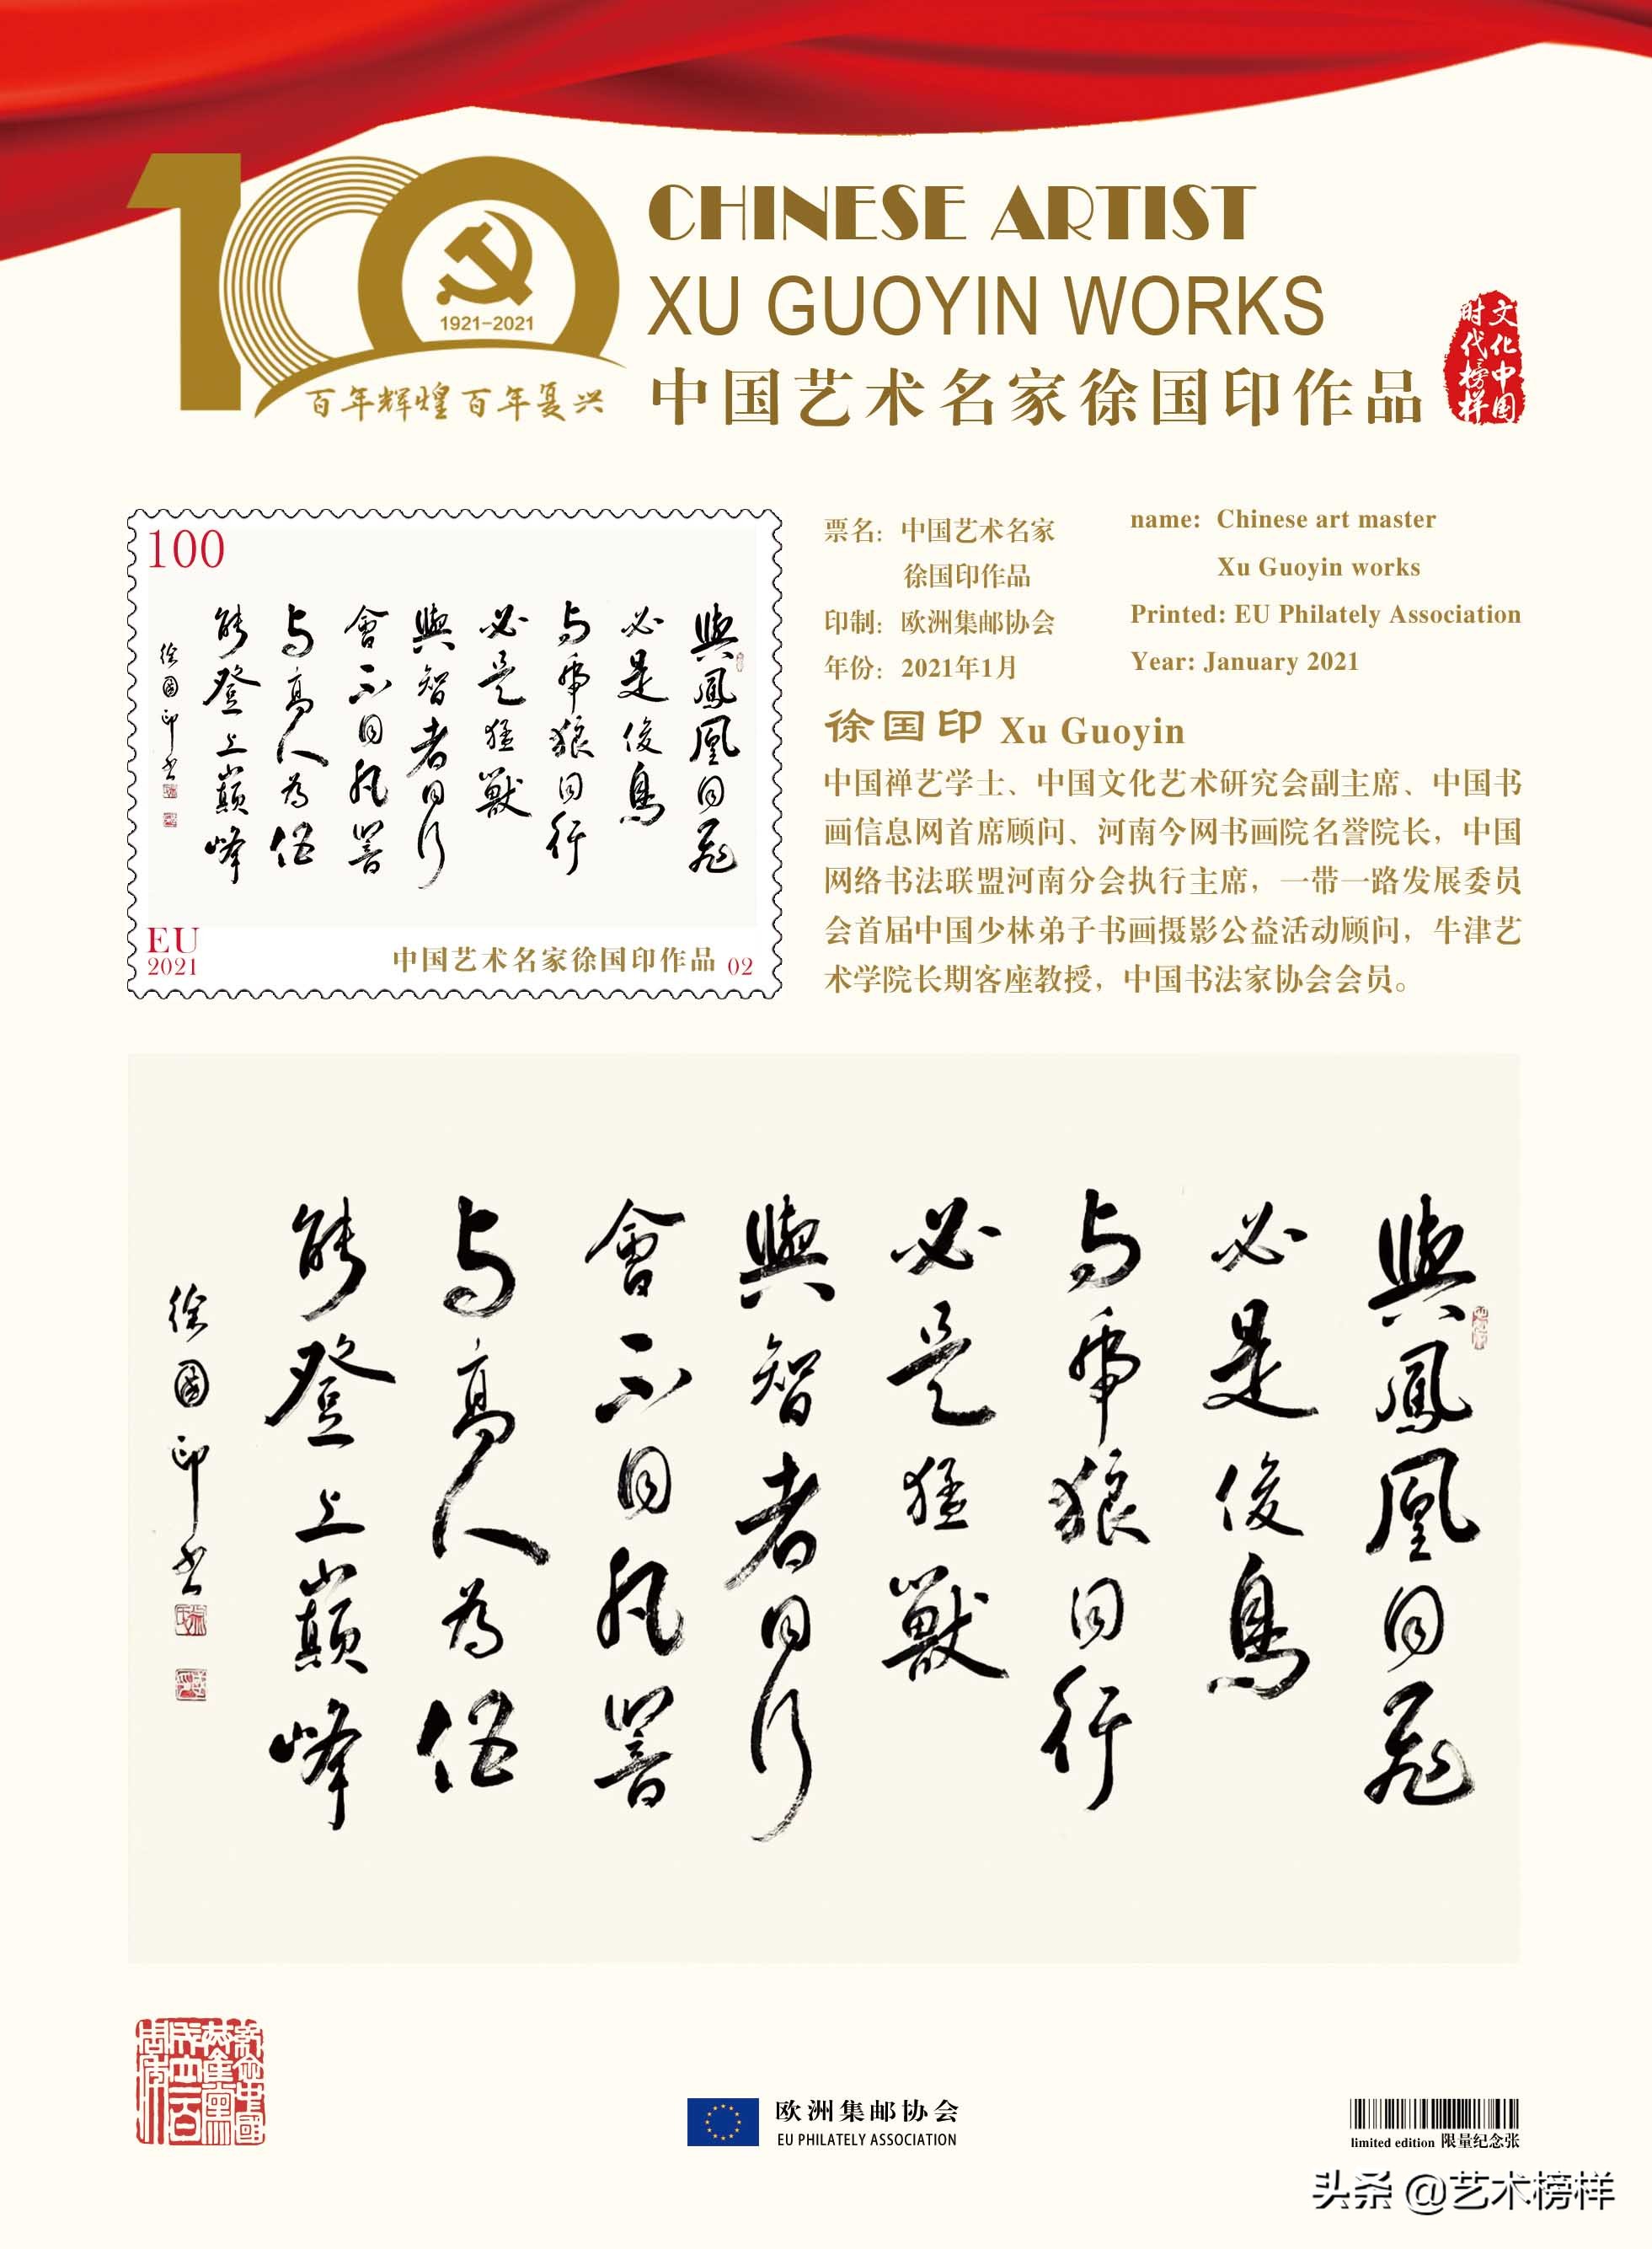 CHINESE ARTIST
XU GUOYIN WORKS
中国艺术名家徐国印作品
文化中国
时代榜样
1921-2021
百年辉煌 百年复兴
100
與鳳凰同飛
必是俊鳥
与虎狼同行
必是猛獸
與智者同行
會不同凡響
与高人為伍
能登上巔峰
徐國印书
EU
2021
中国艺术名家徐国印作品 02
票名：中国艺术名家
徐国印作品
印制：欧洲集邮协会
年份：2021年1月
name: Chinese art master
Xu Guoyin works
Printed: EU Philately Association
Year: January 2021
徐国印 Xu Guoyin
中国禅艺学士、中国文化艺术研究会副主席、中国书
画信息网首席顾问、河南今网书画院名誉院长，中国
网络书法联盟河南分会执行主席，一带一路发展委员
会首届中国少林弟子书画摄影公益活动顾问，牛津艺
术学院长期客座教授，中国书法家协会会员。
與鳳凰同飛
必是俊鳥
与虎狼同行
必是猛獸
與智者同行
會不同凡響
与高人為伍
能登上巔峰
徐國印书
欧洲集邮协会
EU PHILATELY ASSOCIATION
limited edition 限量纪念张
头条 @艺术榜样